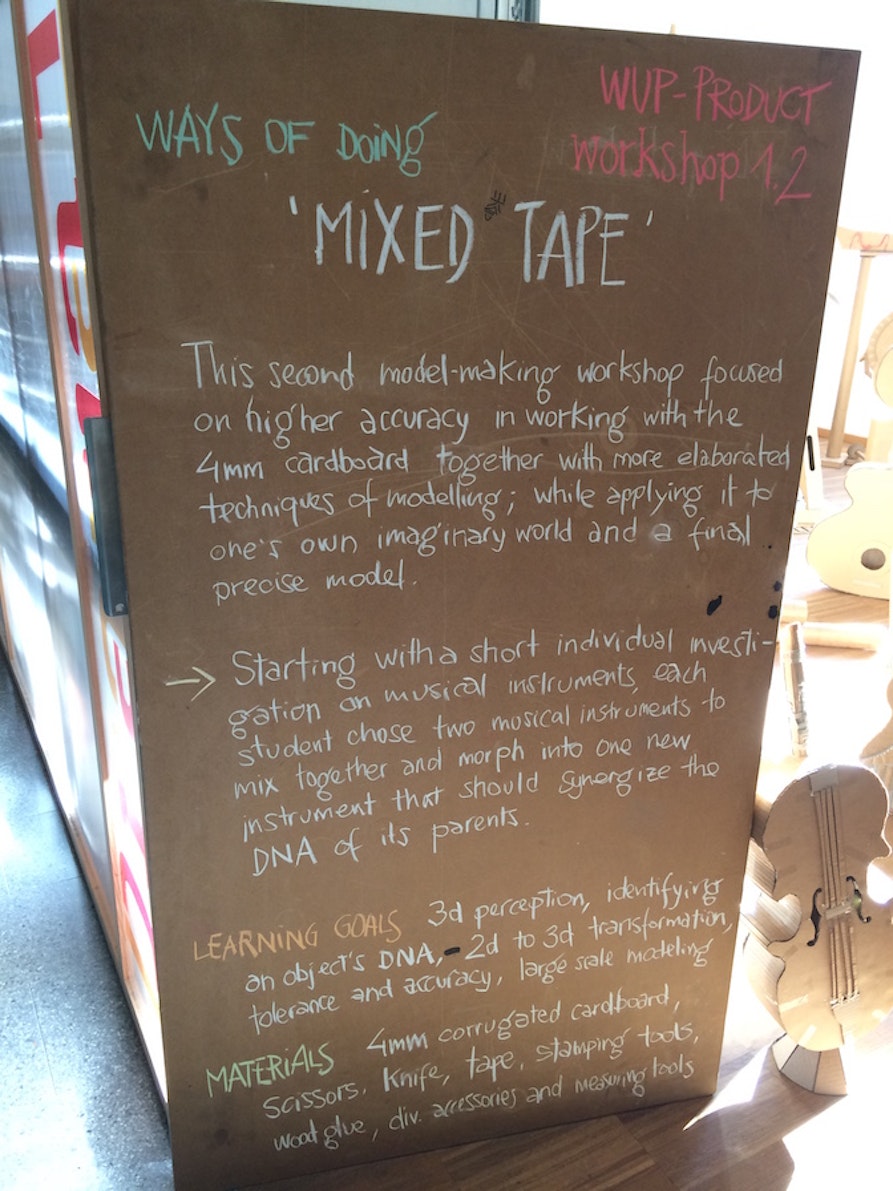 WAYS OF DOING
WUP-PRODUCT
workshop 1.2
'MIXED TAPE'
This second model-making workshop focused
on higher accuracy in working with the
4mm cardboard together with more elaborated
techniques of modelling; while applying it to
one's own imaginary world and a final
precise model.
→ Starting with a short individual investi-
gation on musical instruments, each
student chose two musical instruments to
mix together and morph into one new
instrument that should synergize the
DNA of its parents.
LEARNING GOALS 3d perception, identifying
an object's DNA, - 2d to 3d transformation,
tolerance and accuracy, large scale modeling
MATERIALS 4mm corrugated cardboard,
scissors, knife, tape, stamping tools,
wood glue, div. accessories and measuring tools